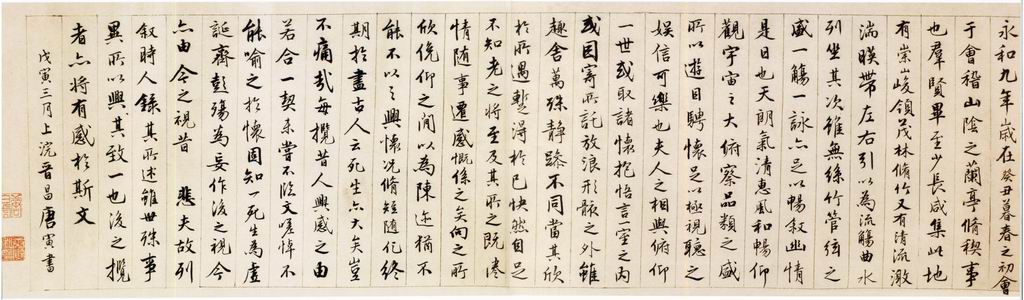 永和九年歲在癸丑暮春之初會
于會稽山陰之蘭亭脩稧事
也羣賢畢至少長咸集此地
有崇山峻領茂林脩竹又有清流激
湍暎帶左右引以為流觴曲水
列坐其次雖無絲竹管弦之
盛一觴一詠亦足以暢敘幽情
是日也天朗氣清惠風和暢仰
觀宇宙之大俯察品類之盛
所以遊目騁懷足以極視聽之
娛信可樂也夫人之相與俯仰
一世或取諸懷抱悟言一室之內
或因寄所託放浪形骸之外雖
趣舍萬殊靜躁不同當其欣
於所遇蹔得於己怏然自足
不知老之將至及其所之既惓
情隨事遷感慨係之矣向之所
欣俛仰之間以為陳迹猶不
能不以之興懷況脩短隨化終
期於盡古人云死生亦大矣豈
不痛哉每攬昔人興感之由
若合一契未嘗不臨文嗟悼不
能喻之於懷固知一死生為虛
誕齊彭殤為妄作後之視今
亦由今之視昔 悲夫故列
敘時人錄其所述雖世殊事
異所以興其致一也後之攬
者亦將有感於斯文
戊寅三月上浣晉昌唐寅書